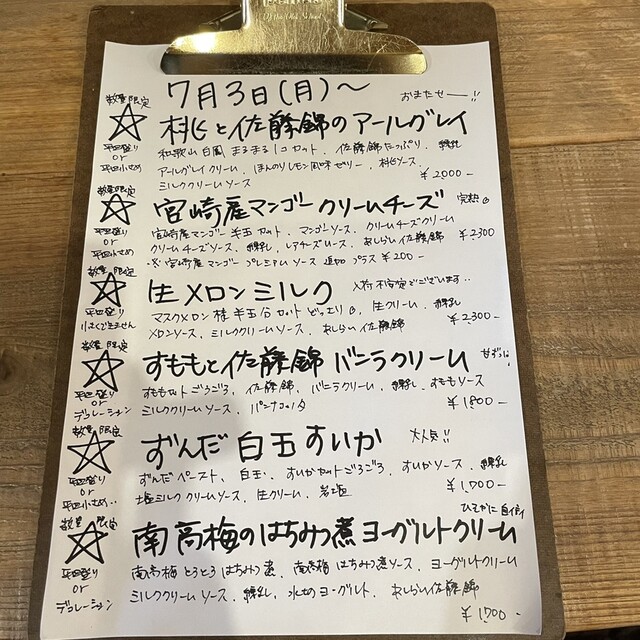 7月3日(月)〜
おまたせー!!
数量限定
桃と佐藤錦のアールグレイ
平皿盛り
or
平皿小さめ
和歌山白鳳まるまる1コカット、佐藤錦たっぷり、練乳
アールグレイクリーム、ほんのりレモン風味ゼリー、桃ソース、
ミルククリームソース
¥2,000-
数量限定
宮崎産マンゴークリームチーズ
平皿盛り
or
平皿小さめ
宮崎産マンゴー半玉カット、マンゴーソース、クリームチーズクリーム
クリームチーズソース、練乳、レアチーズソース、あしらい佐藤錦
¥2,300
※宮崎産マンゴープレミアムソース追加プラス¥200-
数量限定
生メロンミルク
入荷不安定でございます..
平皿盛り
小さくできません
マスクメロン 半玉分カットどっさり、生クリーム、練乳
メロンソース、ミルククリームソース、あしらい佐藤錦
¥2,300-
数量限定
すももと佐藤錦バニラクリーム
平皿盛り
or
デコレーション
すももカットごろごろ、佐藤錦、バニラクリーム、練乳、すももソース
ミルククリームソース、パンナコッタ
¥1,800-
数量限定
ずんだ白玉すいか
大人気!!
平皿盛り
or
平皿小さめ..
ずんだペースト、白玉、すいかカットごろごろ、すいかソース、練乳
塩ミルククリームソース、生クリーム、岩塩
¥1,700-
ひそかに自信作
数量限定
南高梅のはちみつ煮ヨーグルトクリーム
平皿盛り
or
デコレーション
南高梅とろとろはちみつ煮、南高梅はちみつ煮ソース、ヨーグルトクリーム
ミルククリームソース、練乳、水切りヨーグルト、あしらい佐藤錦
¥1,700-